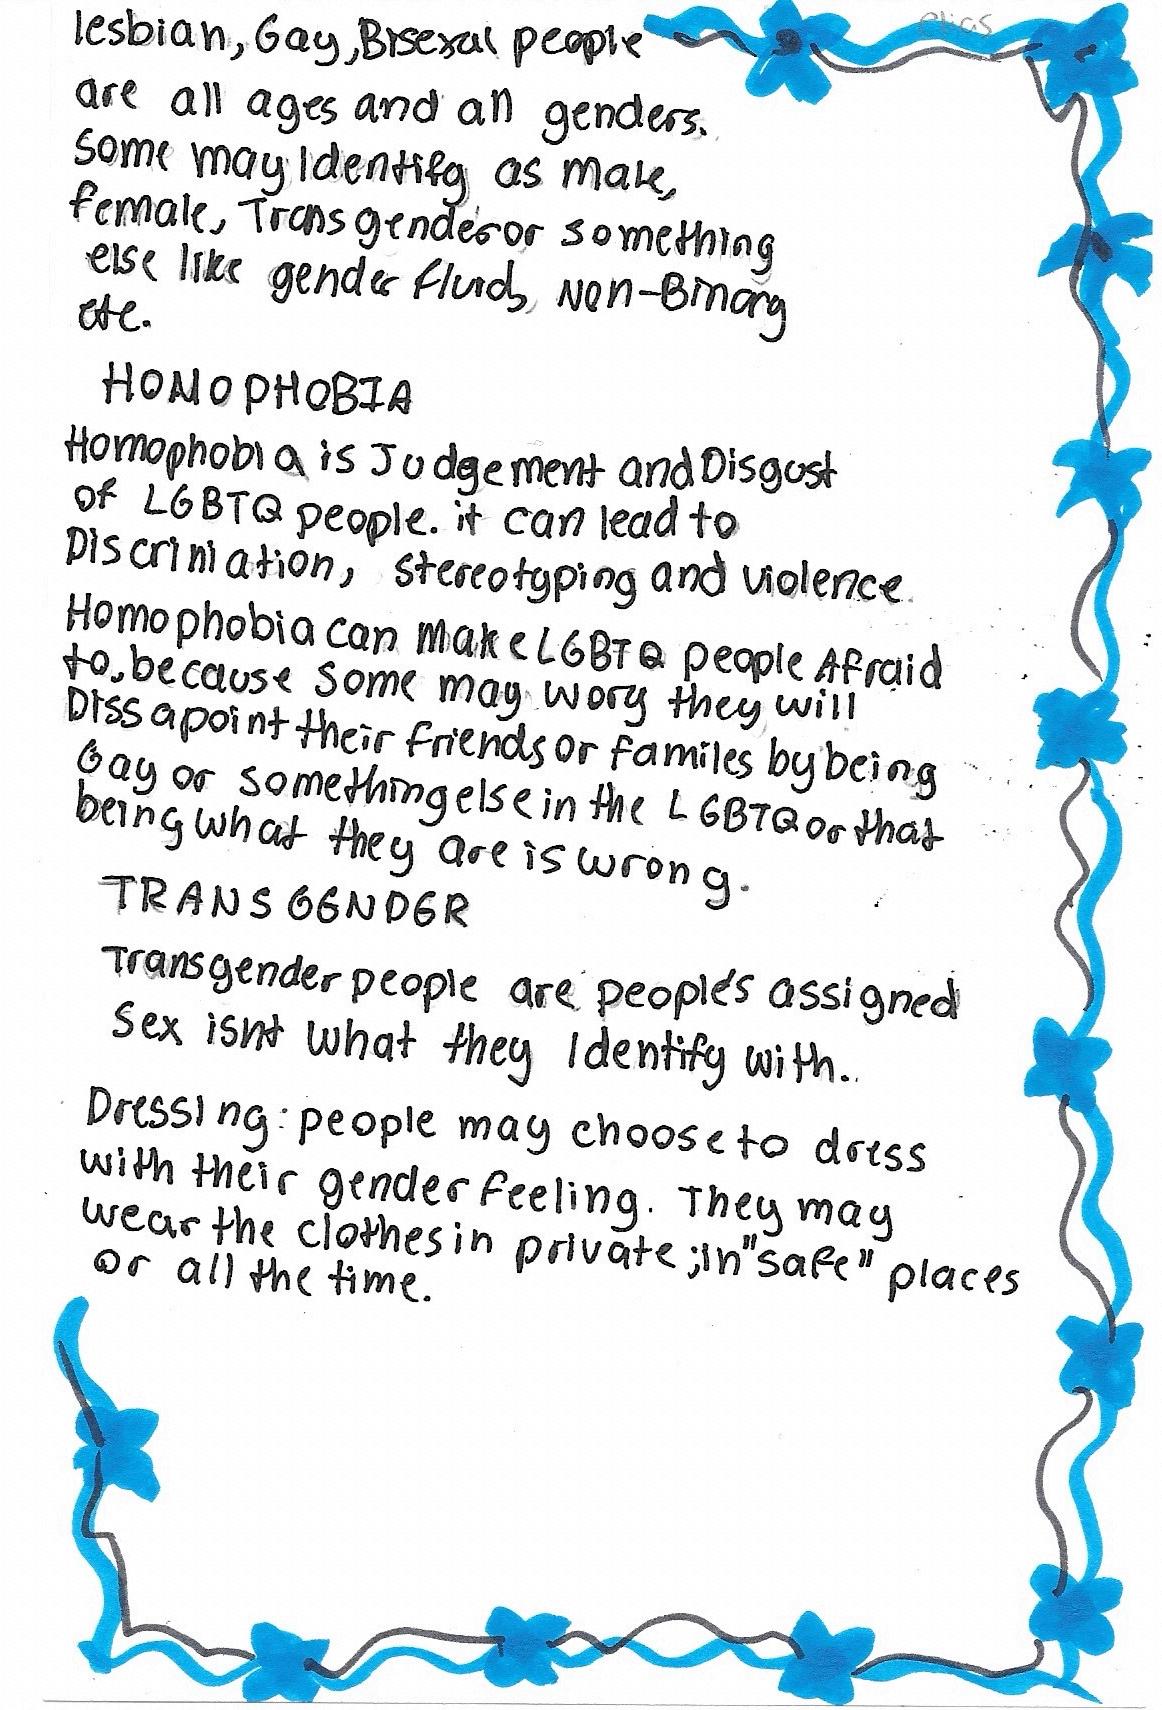 elias
lesbian, Gay, Bisexual people
are all ages and all genders.
Some may Identify as Male,
female, Transgender or something
else like gender fluid, Non-Binary
etc.
HOMOPHOBIA
Homophobia is Judgement and Disgust
of LGBTQ people. it can lead to
Discriniation, stereotyping and violence
Homophobia can Make LGBTQ people Afraid
to, because some may wory they will
Dissapoint their friends or familes by being
Gay or something else in the LGBTQ or that
being what they are is wrong.
TRANSGENDER
Transgender people are people's assigned
Sex isnt what they Identify with..
Dressing: people may choose to dress
with their gender feeling. They may
wear the clothes in private; in "safe" places
or all the time.